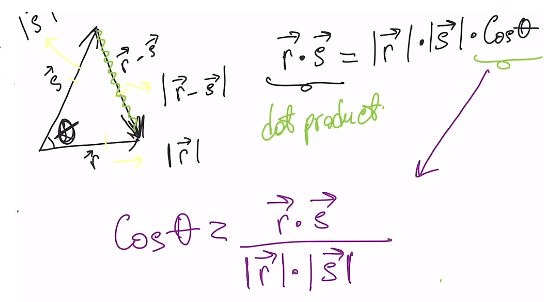 |s⃗|
s⃗
r⃗ - s⃗
|r⃗ - s⃗|
θ
r⃗
|r⃗|
r⃗ · s⃗ = |r⃗| · |s⃗| · Cosθ
dot product.
Cosθ = r⃗ · s⃗ / |r⃗| · |s⃗|